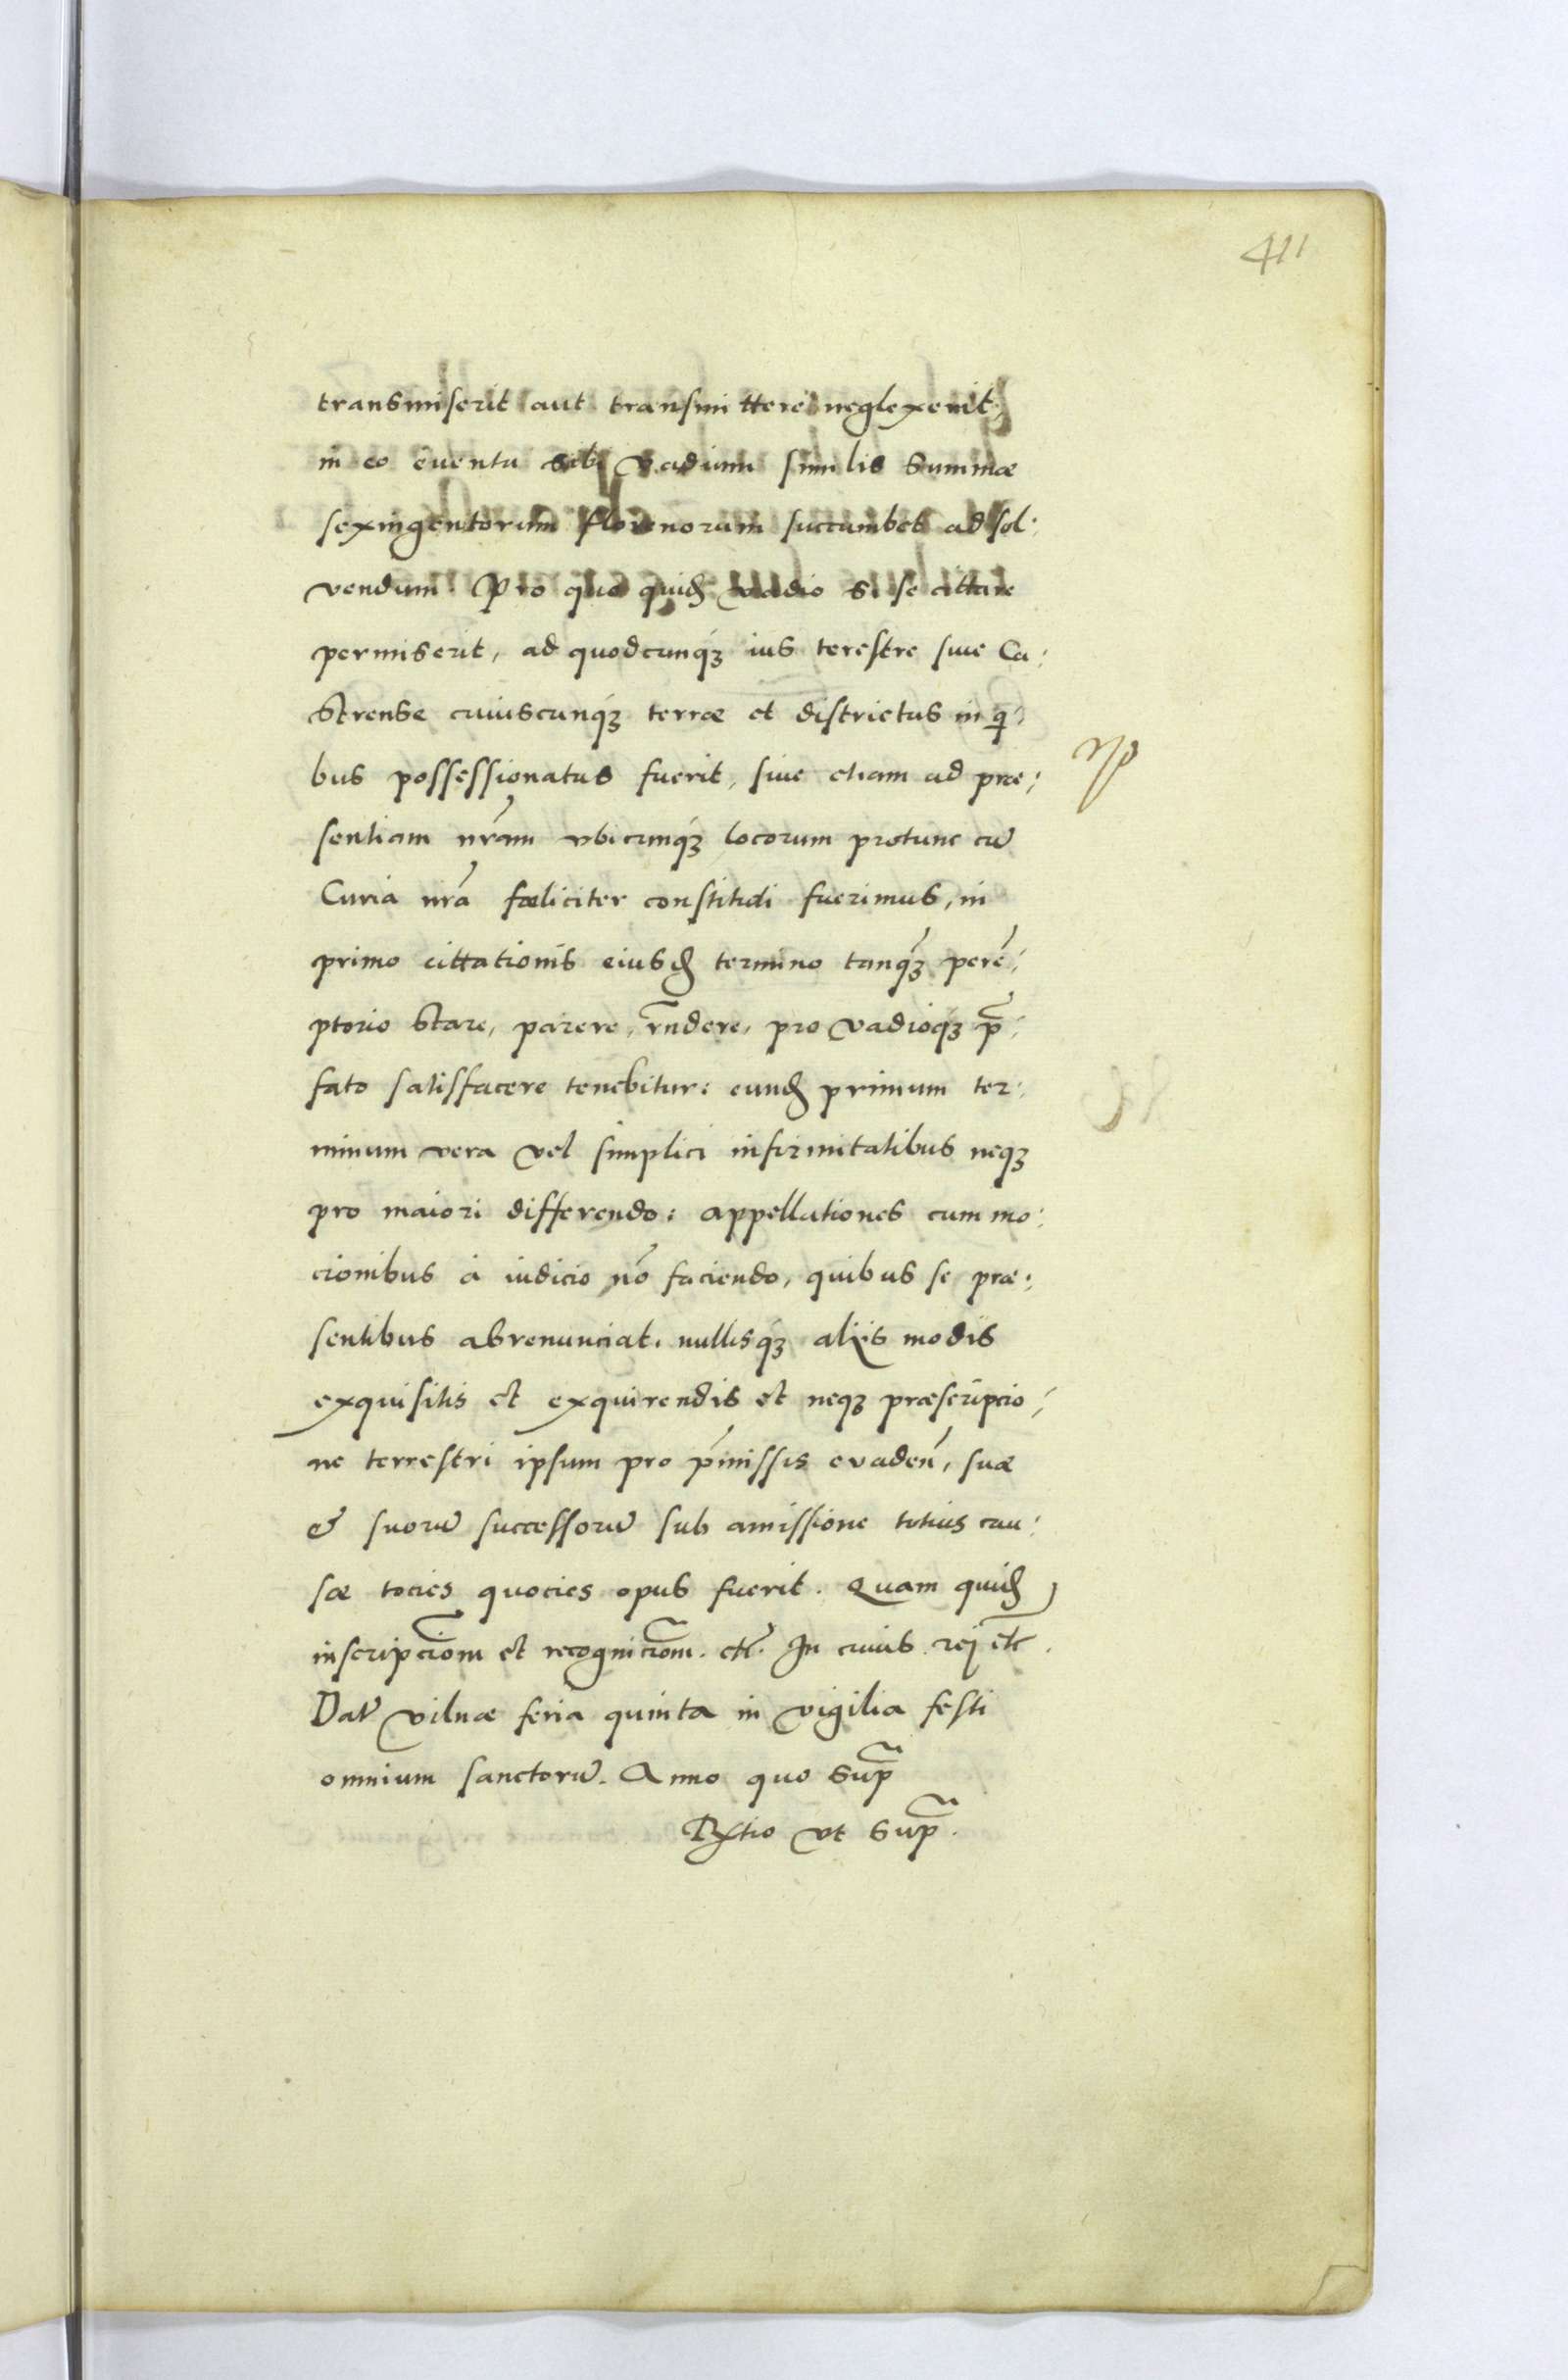 411
transmiserit aut transmittere neglexerit,
in eo euentu sub vadium similis summæ
sexingentorum florenorum succumbet ad sol:
vendum. Pro quo quidẽ vadio si se cittare
permiserit, ad quodcunq́ꝫ ius terestre siue Ca:
strense cuiuscunq́ꝫ terræ et districtus in qi:
bus possessionatus fuerit, siue etiam ad præ:
sentiam nr̃am vbicunq́ꝫ locorum protunc cũ
Curia nr̃a fœliciter constituti fuerimus, in
primo cittationis eiusdẽ termino tanq́ꝫ perẽ:
ptorio stare, parere, rñdere, pro vadioq́ꝫ p̃:
fato satisfacere tenebitur: eundẽ primum ter:
minum vera vel simplici infirmitatibus neqꝫ
pro maiori differendo: appellationes cum mo:
cionibus à iudicio nõ faciendo, quibus se præ:
sentibus abrenunciat. nullisq́ꝫ alijs modis
exquisitis et exquirendis et neqꝫ præscripcio:
ne terrestri ipsum pro p̃missis evadeñ, suæ
& suorũ successorũ sub amissione totius cau:
sæ tocies quocies opus fuerit. Quam quidẽ
inscripciõm et recogniciõm. etc̃. In cuius rej etc̃.
Dat̃ vilnæ feria quinta in vigilia festi
omnium sanctorũ. Anno quo sup̃
Rltio vt sup̃.